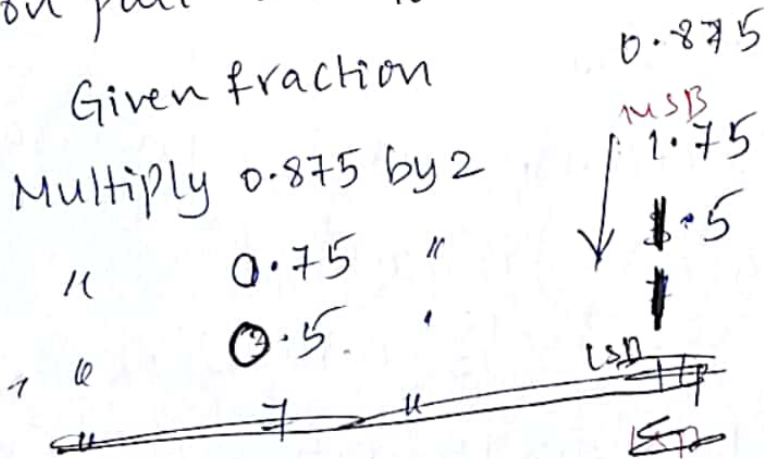 Given fraction 0.875
MSB
Multiply 0.875 by 2 1.75
" 0.75 " 1.5
" 0.5 " 1
LSB